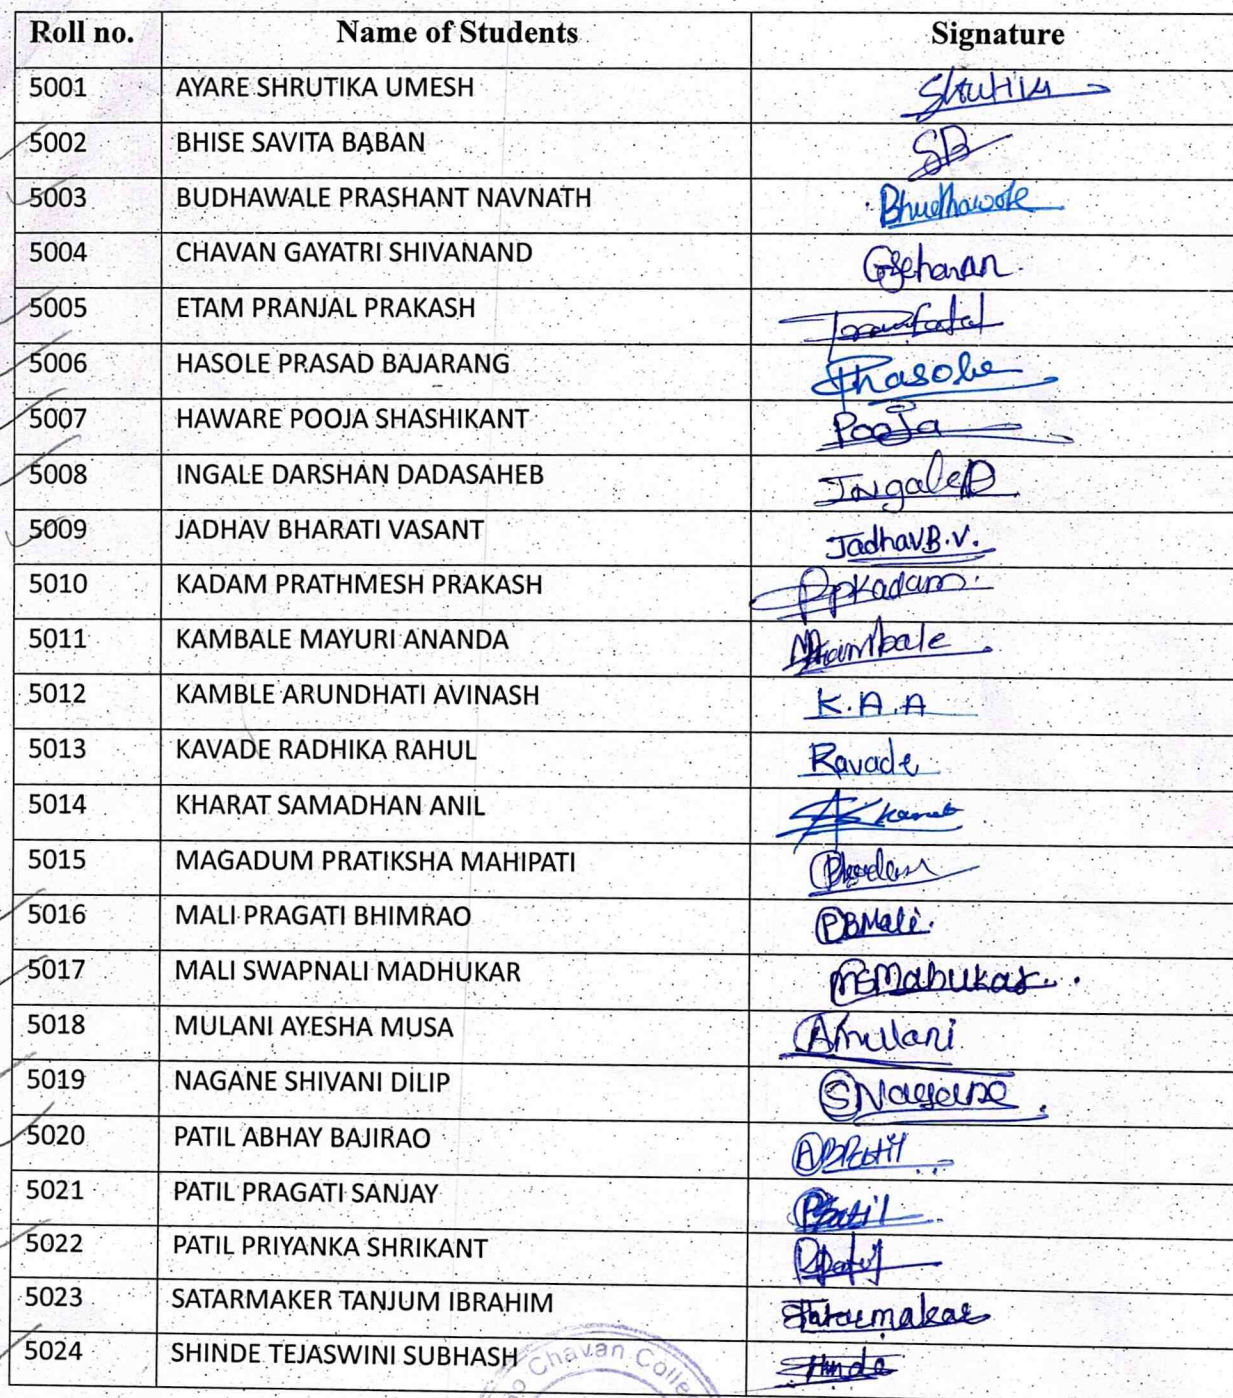 Roll no. Name of Students Signature
5001 AYARE SHRUTIKA UMESH Shrutika
5002 BHISE SAVITA BABAN SB
5003 BUDHAWALE PRASHANT NAVNATH Bhudhawale
5004 CHAVAN GAYATRI SHIVANAND
5005 ETAM PRANJAL PRAKASH
5006 HASOLE PRASAD BAJARANG Phasole
5007 HAWARE POOJA SHASHIKANT Pooja
5008 INGALE DARSHAN DADASAHEB IngaleD
5009 JADHAV BHARATI VASANT Jadhav B.V.
5010 KADAM PRATHMESH PRAKASH PPKadam
5011 KAMBALE MAYURI ANANDA MKambale
5012 KAMBLE ARUNDHATI AVINASH K.A.A
5013 KAVADE RADHIKA RAHUL Ravade
5014 KHARAT SAMADHAN ANIL
5015 MAGADUM PRATIKSHA MAHIPATI
5016 MALI PRAGATI BHIMRAO PBMali.
5017 MALI SWAPNALI MADHUKAR MSMabukar..
5018 MULANI AYESHA MUSA AMulani
5019 NAGANE SHIVANI DILIP SNagane
5020 PATIL ABHAY BAJIRAO ABPatil
5021 PATIL PRAGATI SANJAY PSPatil
5022 PATIL PRIYANKA SHRIKANT PPatil
5023 SATARMAKER TANJUM IBRAHIM Satarmakar
5024 SHINDE TEJASWINI SUBHASH Shinde
Chavan Colle